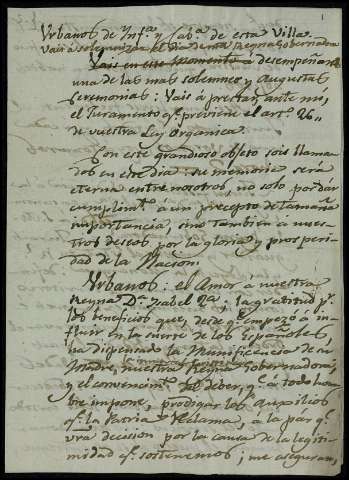 1
Urbanos de Inf.ª y Cab.ª de esta Villa.
Vais á solemnizar el dia de nra Reyna Gobernadora
Vais en este momento á desempeñar
una de las mas solemnes y augustas
Ceremonias: Vais á prestar, ante mi,
el Juramento q.e previene el art.º
de vuestra Ley Organica.
Con este grandioso objeto sois llama-
dos en este dia: su memoria será
eterna entre nosotros, no solo por dar
cumplim.to á un precepto de tamaña
importancia, sino tambien á nues-
tros deseos por la gloria y prosperi-
dad de la Nacion.
Urbanos: el Amor a nuestra
Reyna D.ª Isabel 2.ª; la gratitud p.r
los beneficios que, desde q.e empezó á in-
fluir en la suerte de los Españoles,
ha dispensado la Munificencia de su
Madre, nuestra Reyna Gobernadora,
y el convencim.to del deber, q.e á todo hom-
bre impone, prodigar los Auxilios
q.e la Patria Reclama, á la par q.e
vra decision por la causa de la legiti-
midad q.e sostenemos; me aseguran,